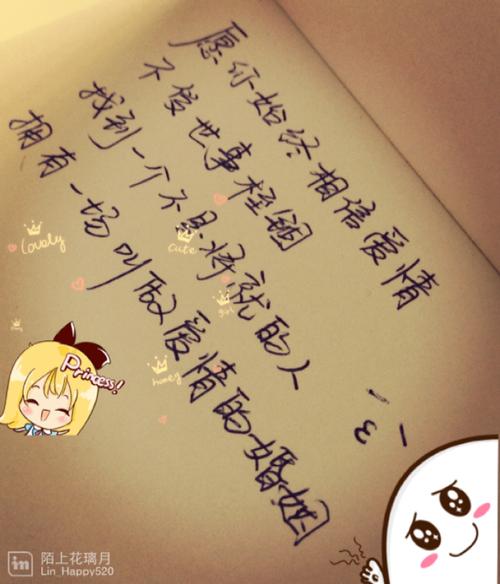 愿你始终相信爱情
不接世事桎梏
找到一个不是将就的人
拥有一场叫做爱情的婚姻
lovely
cute
girl
honey
Princess!
in
陌上花璃月
Lin_Happy520